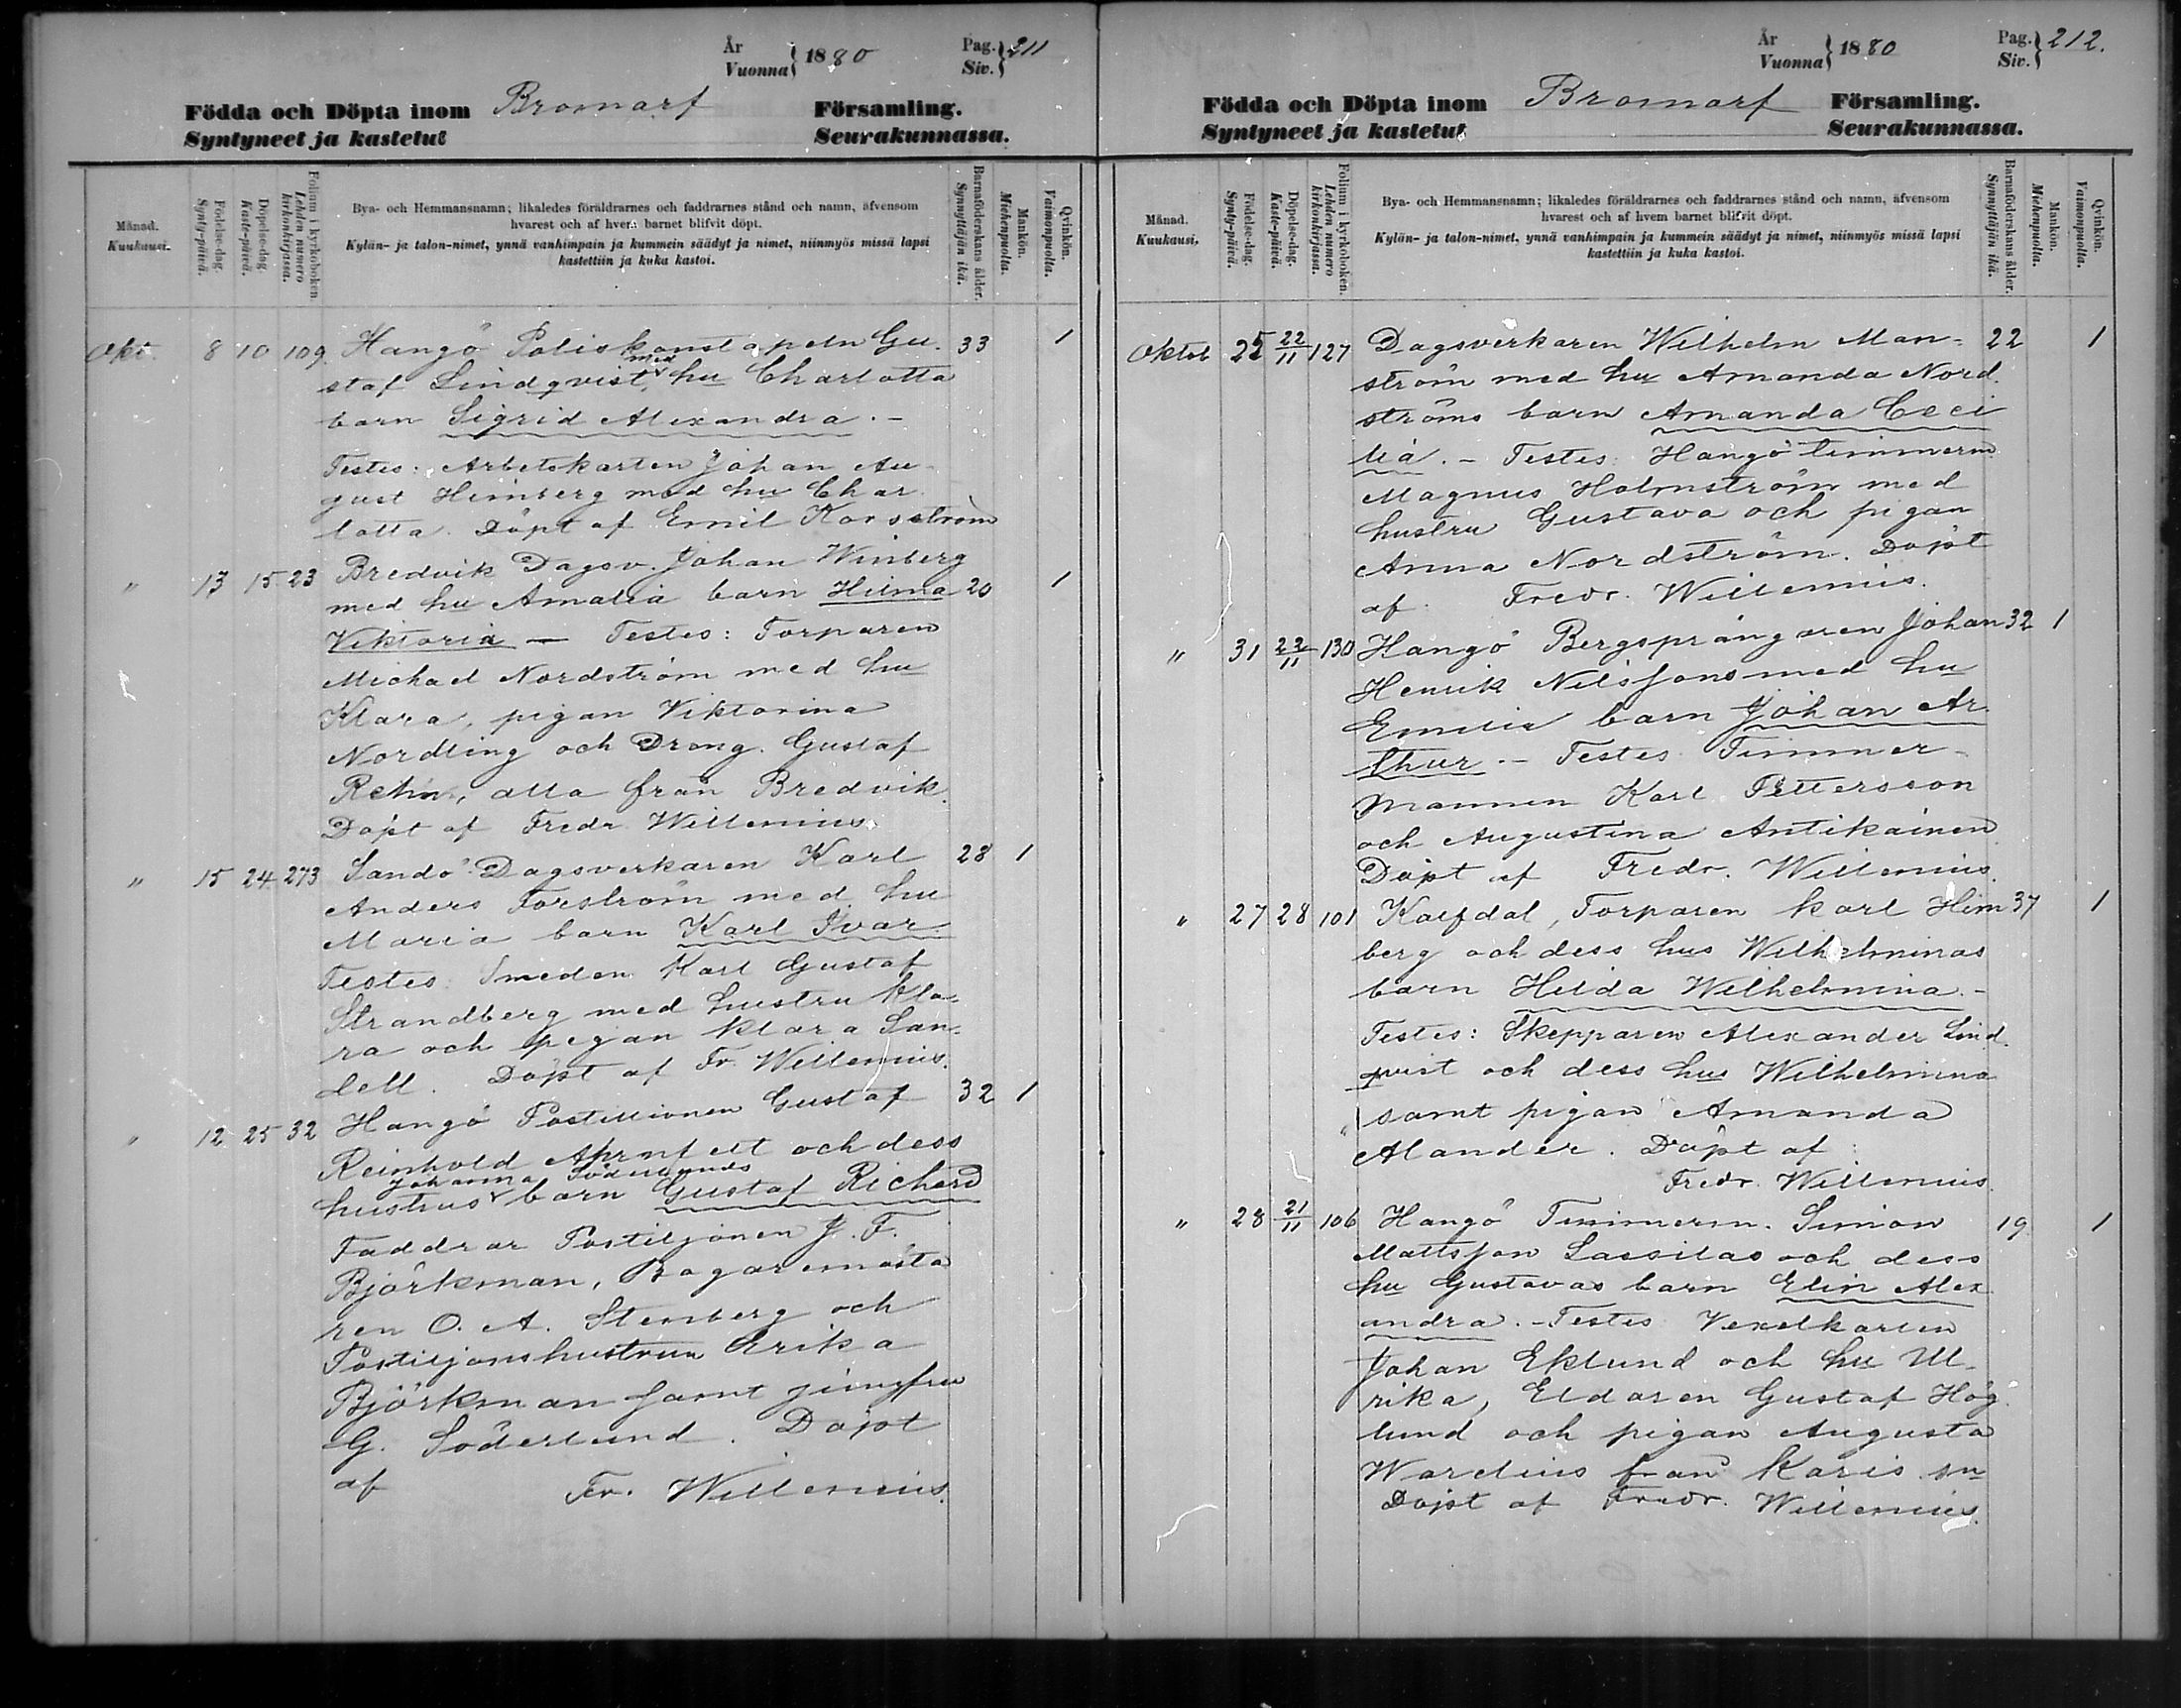 År
Vuonna } 1880
Pag.
Siv. } 211
Födda och Döpta inom Bromarf Församling.
Syntyneet ja kastetut Seurakunnassa.
Månad.
Kuukausi.
Födelse-dag.
Synty-päivä.
Döpelse-dag.
Kaste-päivä.
Folium i kyrkoboken.
Lehden numero kirkonkirjassa.
Bya- och Hemmansnamn; likaledes föräldrarnes och faddrarnes stånd och namn, äfvensom
hvarest och af hvem barnet blifvit döpt.
Kylän- ja talon-nimet, ynnä vanhimpain ja kummein säädyt ja nimet, niinmyös missä lapsi
kastettiin ja kuka kastoi.
Barnaföderskans ålder.
Synnyttäjän ikä.
Mankön.
Miehenpuolta.
Qvinkön.
Vaimonpuolta.
Okt. 8 10 109 Hangö Poliskonstapeln Gu- 33 1
staf Lindqvist med hu Charlotta
barn Sigrid Alexandra. -
Testes: Arbetskarlen Johan Au-
gust Himberg med hu Char
lotta. Döpt af Emil Korsström
" 13 15 23 Bredvik Dagsv. Johan Winberg
med hu Amalia barn Hilma 20 1
Viktoria — Testes: Torparen
Michael Nordström med hu
Klara, pigan Viktorina
Nordling och Dräng. Gustaf
Rehn, alla från Bredvik.
Döpt af Fredr. Willenius.
" 15 24 273 Sandö Dagsverkaren Karl 28 1
Anders Forström med hu
Maria barn Karl Ivar.
Testes: Smeden Karl Gustaf
Strandberg med hustru Kla-
ra och pigan Klara San-
dell. Döpt af Fr. Willenius.
" 12 25 32 Hangö Postillionen Gustaf 32 1
Reinhold Ahrnfelt och dess
hustrus Johanna Söderlunds barn Gustaf Richard
Faddrar Postiljonen J. F.
Björkman, Bagaremästa
ren O. A. Stenberg och
Postiljonshustrun Erika
Björkman samt jungfru
G. Söderlund. Döpt
af Fr. Willenius.
År
Vuonna } 1880
Pag.
Siv. } 212.
Födda och Döpta inom Bromarf Församling.
Syntyneet ja kastetut Seurakunnassa.
Månad.
Kuukausi.
Födelse-dag.
Synty-päivä.
Döpelse-dag.
Kaste-päivä.
Folium i kyrkoboken.
Lehden numero kirkonkirjassa.
Bya- och Hemmansnamn; likaledes föräldrarnes och faddrarnes stånd och namn, äfvensom
hvarest och af hvem barnet blifvit döpt.
Kylän- ja talon-nimet, ynnä vanhimpain ja kummein säädyt ja nimet, niinmyös missä lapsi
kastettiin ja kuka kastoi.
Barnaföderskans ålder.
Synnyttäjän ikä.
Mankön.
Miehenpuolta.
Qvinkön.
Vaimonpuolta.
Oktob 25 22/11 127 Dagsverkaren Wilhelm Man- 22 1
ström med hu Amanda Nord-
ströms barn Amanda Ceci
lia. - Testes: Hangö timmerm.
Magnus Holmström med
hustru Gustava och pigan
Anna Nordström. Döpt
af Fredr. Willenius.
" 31 22/11 130 Hangö Bergsprängaren Johan 32 1
Henrik Nilssons med hu
Emilia barn Johan Ar
thur. - Testes Timmer-
mannen Karl Pettersson
och Augustina Antikainen
Döpt af Fredr. Willenius.
" 27 28 101 Kalfdal, Torparen Karl Him 37 1
berg och dess hus Wilhelminas
barn Hilda Wilhelmina. -
Testes: Skepparen Alexander Lind
qvist och dess hus Wilhelmina
samt pigan Amanda
Alander. Döpt af
Fredr. Willenius.
" 28 21/11 106 Hangö Timmerm. Simon 19 1
Mattsson Lassilas och dess
hu Gustavas barn Elin Alex
andra. - Testes Vexelkarlen
Johan Eklund och hu Ul-
rika, Eldaren Gustaf Hög
lund och pigan Augusta
Wardius från Karis sn
Döpt af Fredr. Willenius.